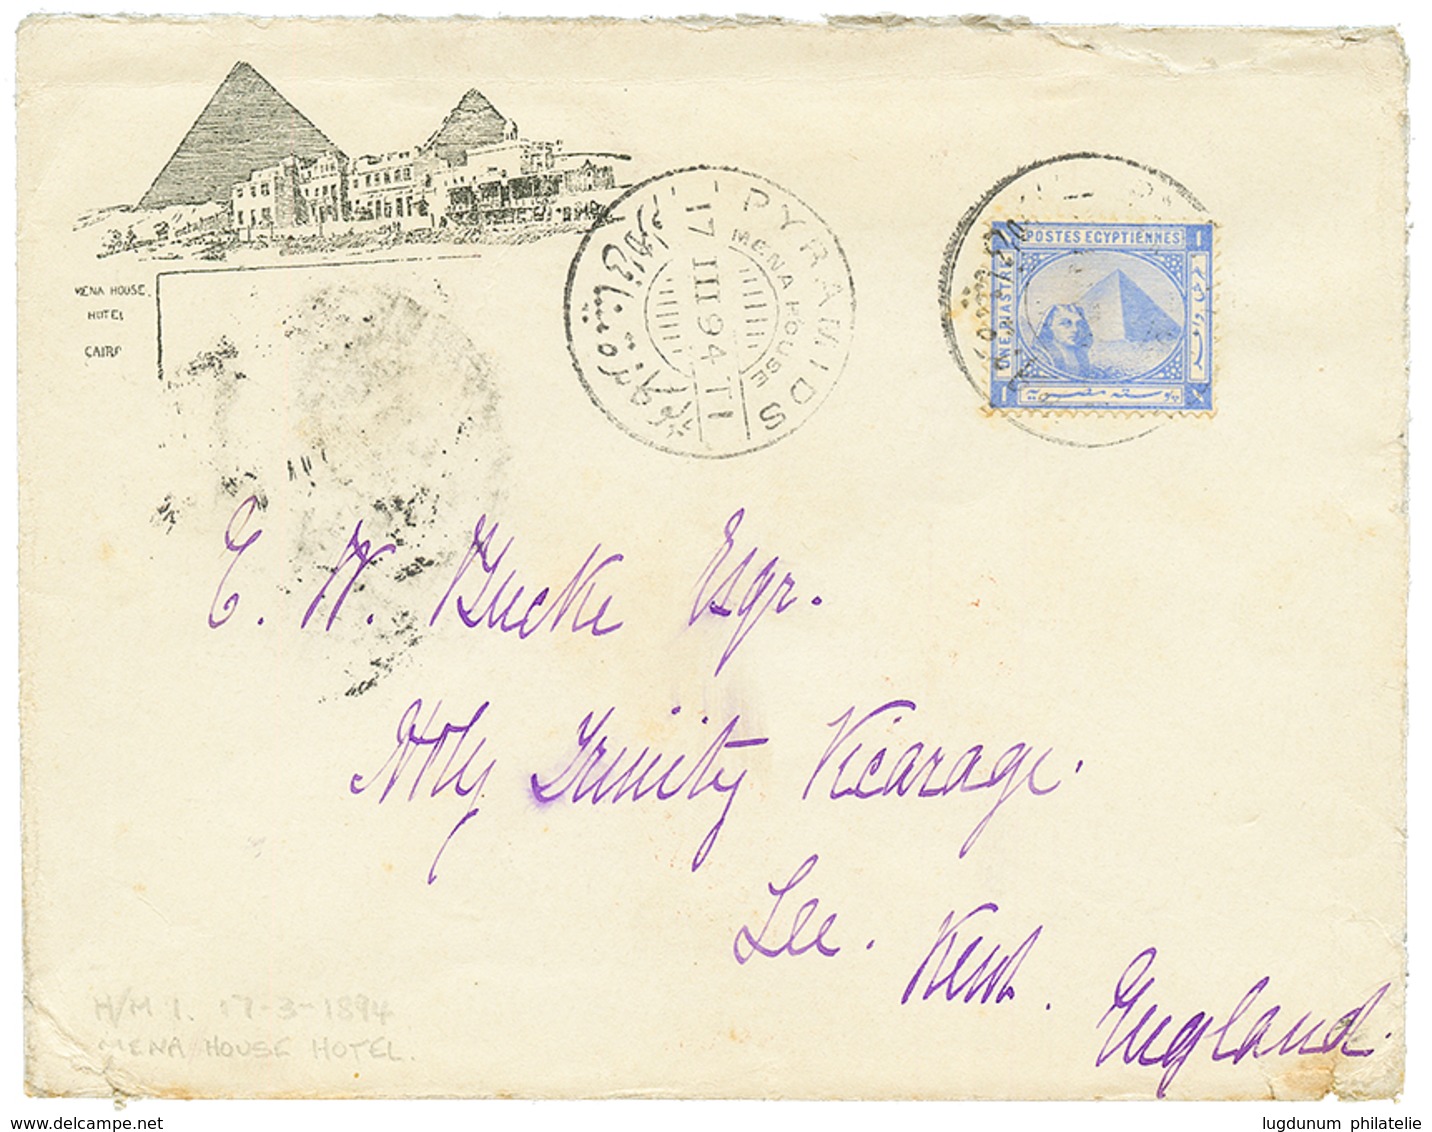 MENA HOUSE.
HOTEL
CAIRO
PYRAMIDS
MENA HOUSE
17 III 94 T1
POSTES EGYPTIENNES
ONE PIASTRE
1
1
بوسته مصريه
١
C. W. Bucke Esqr.
Holy Trinity Vicarage.
Lee. Kent. England.
H/M 1. 17-3-1894
MENA HOUSE HOTEL.
www.delcampe.net
lugdunum philatelie